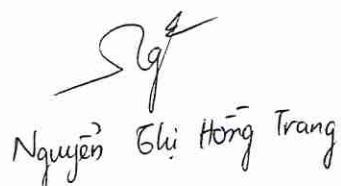 Nguyễn Thị Hồng Trang